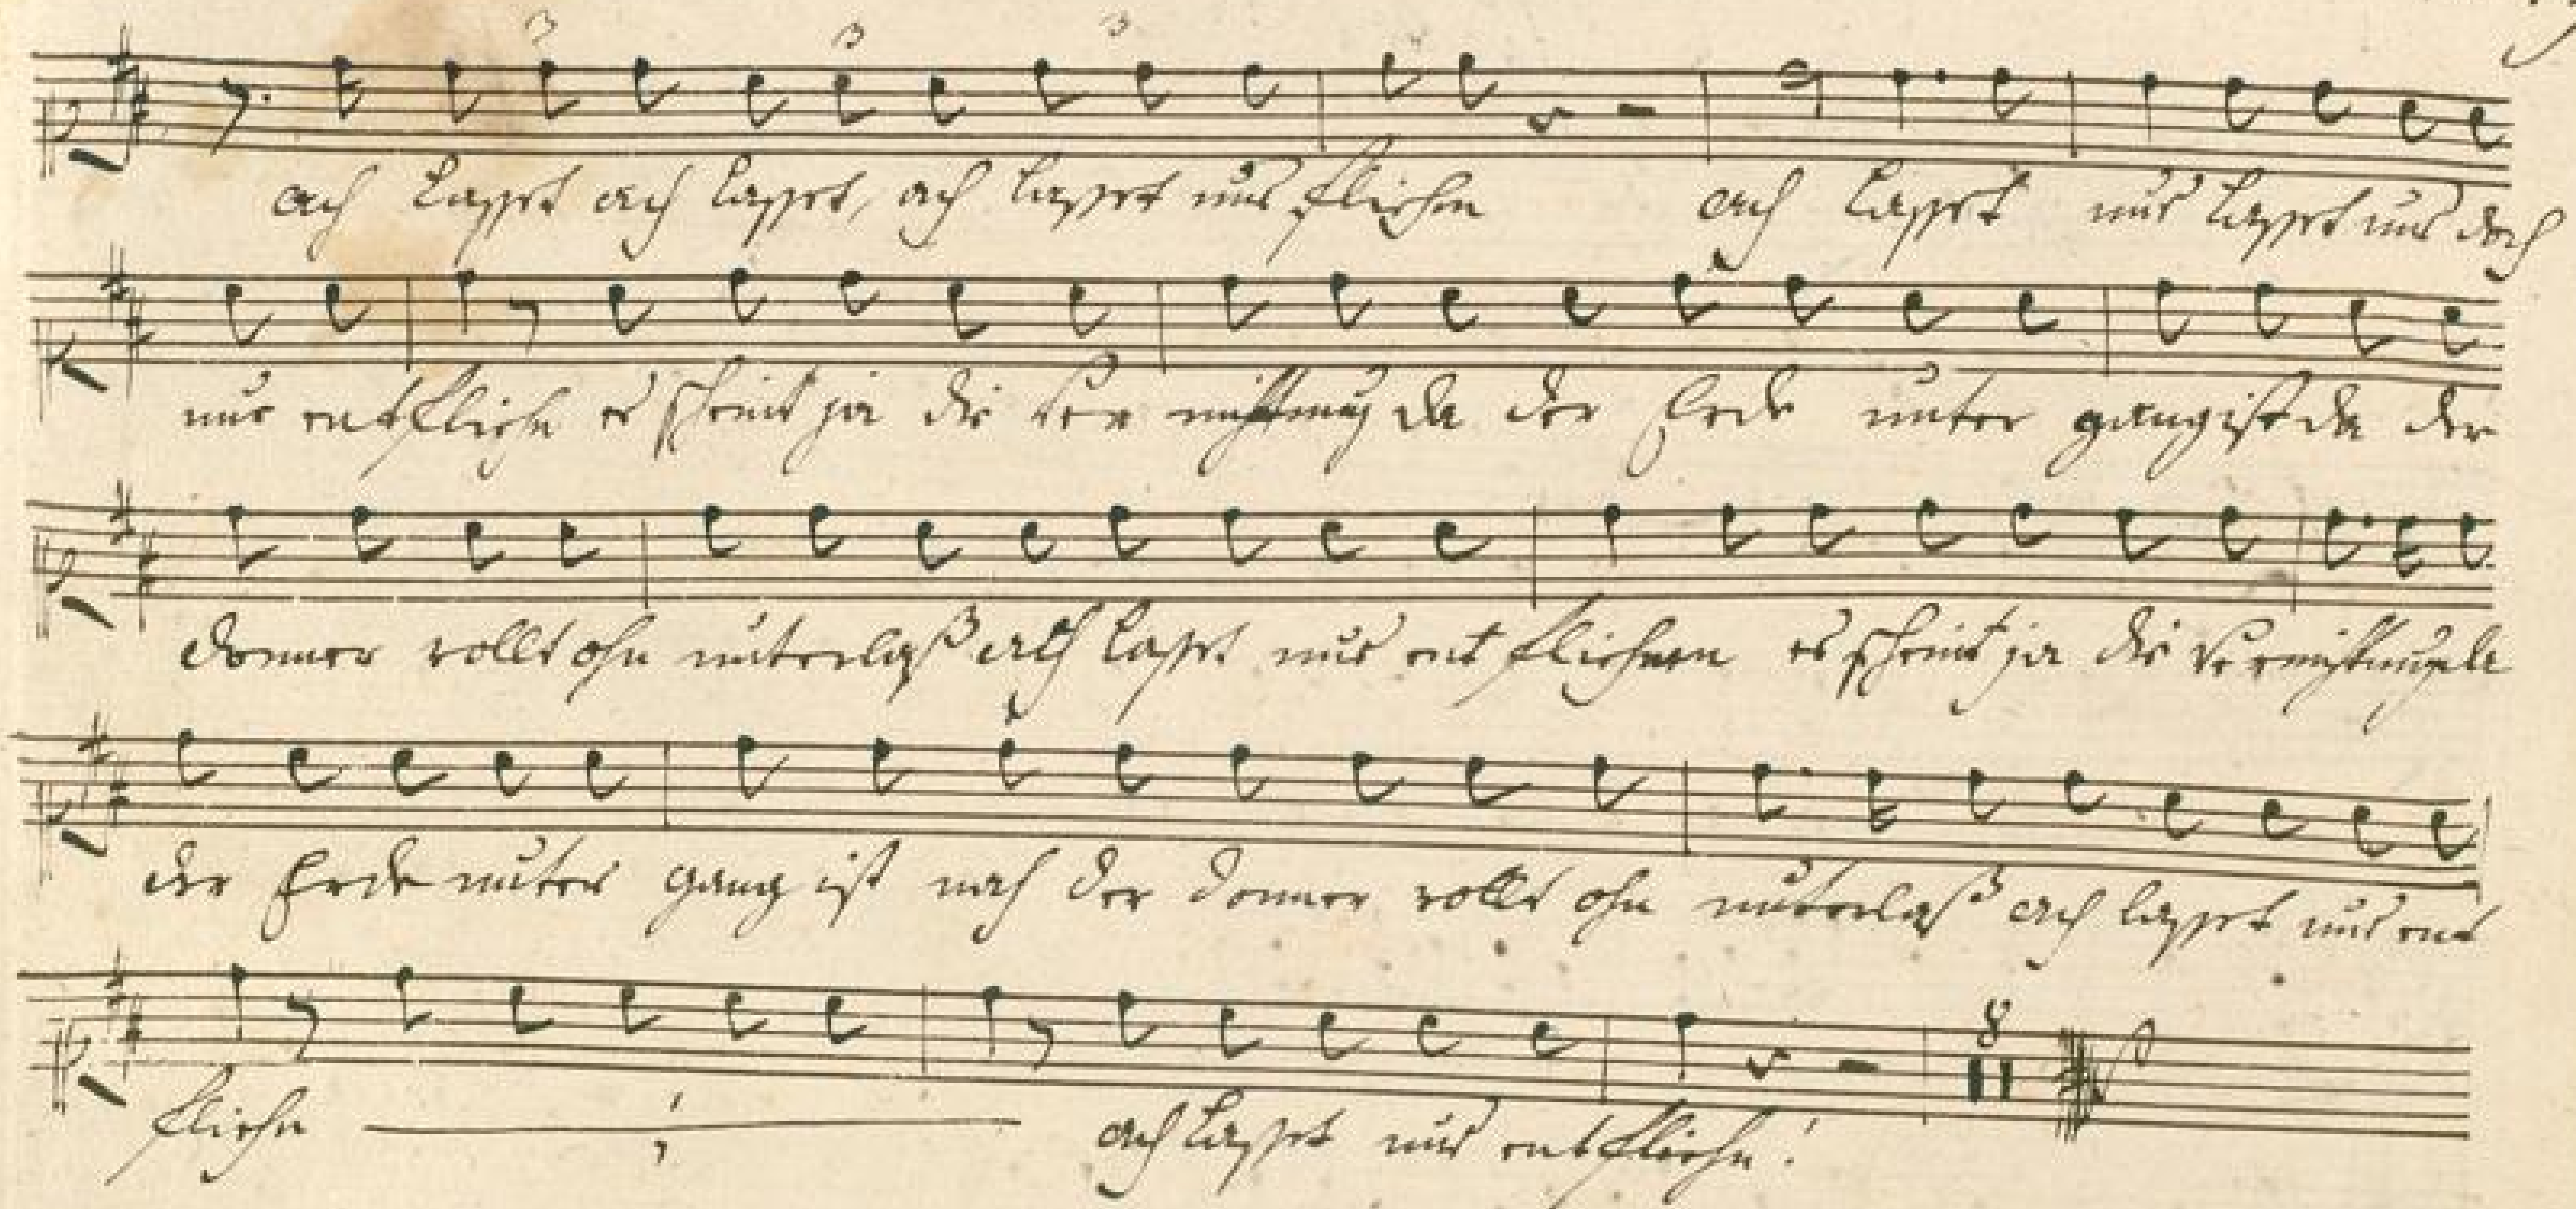 3 3 3
ach lasset ach lasset, ach lasset uns fliehen ach lasset uns lasset uns doch
uns entfliehn es scheint ja die Ver nichtung da der Erde unter gang ist da der
Donner rollt ohn unterlaß ach lasset uns ent fliehen es scheint ja die Vernichtung da
der Erde unter gang ist nah der Donner rollt ohn unterlaß ach lasset uns ent
8
fliehn ach lasset uns entfliehn!